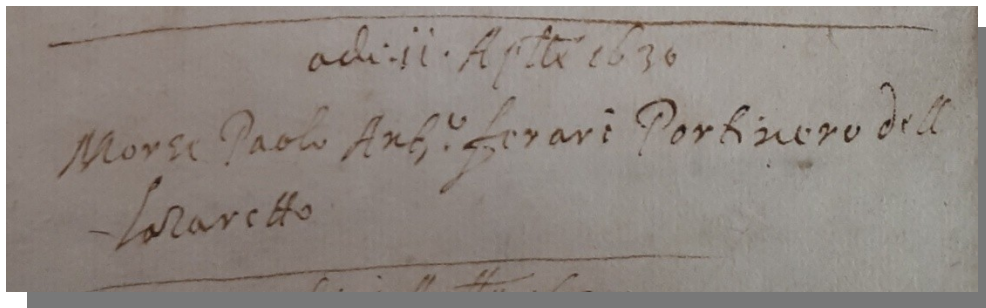 adi .11. Aprile 1630
Morse Paolo Ant.º ferari Portinero dell
Lazaretto